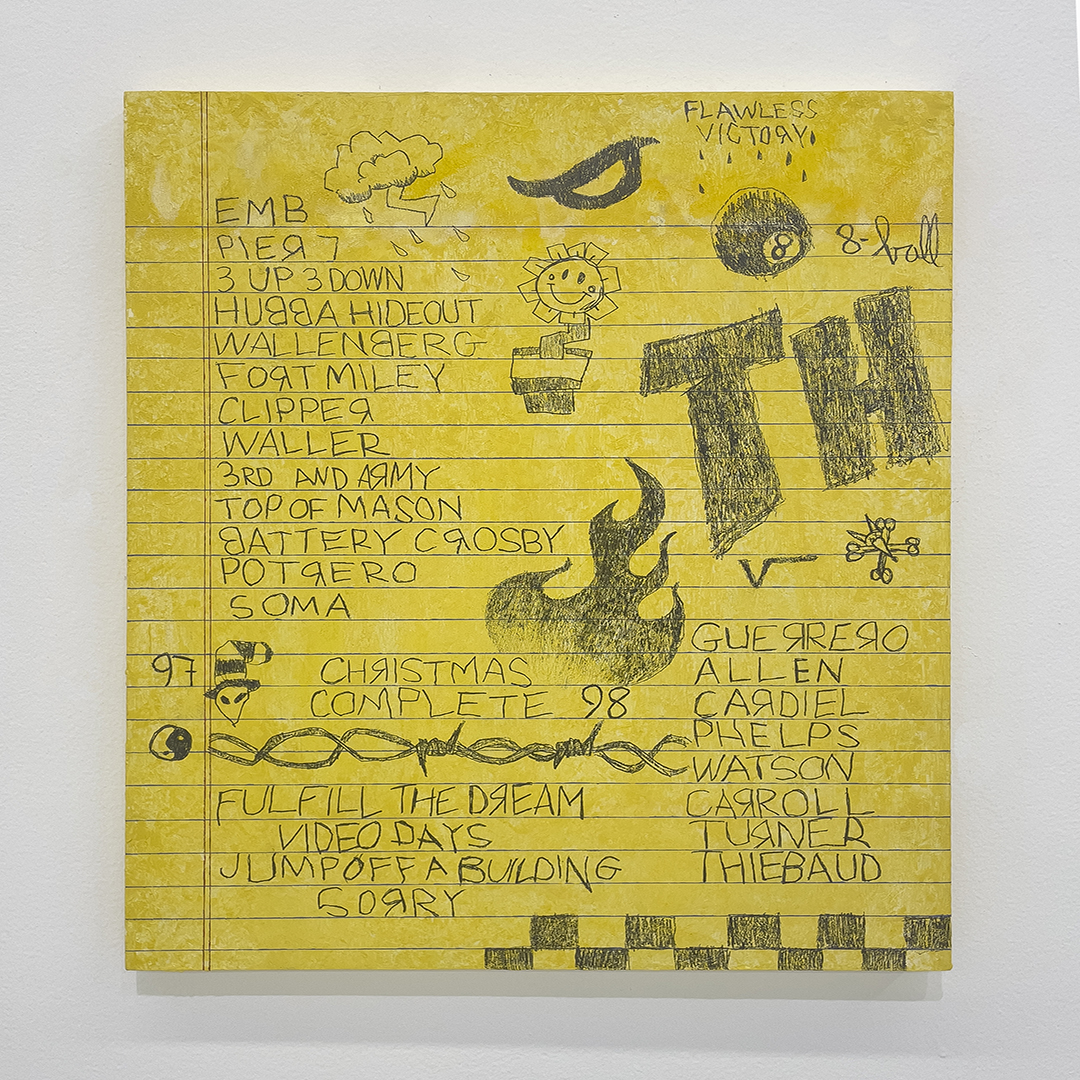 FLAWLESS
VICTORY
8
8-ball
TH
EMB
PIER 7
3 UP 3 DOWN
HUBBA HIDEOUT
WALLENBERG
FORT MILEY
CLIPPER
WALLER
3RD AND ARMY
TOP OF MASON
BATTERY CROSBY
POTRERO
SOMA
97
CHRISTMAS
COMPLETE 98
FULFILL THE DREAM
VIDEO DAYS
JUMP OFF A BUILDING
SORRY
GUERRERO
ALLEN
CARDIEL
PHELPS
WATSON
CARROLL
TURNER
THIEBAUD